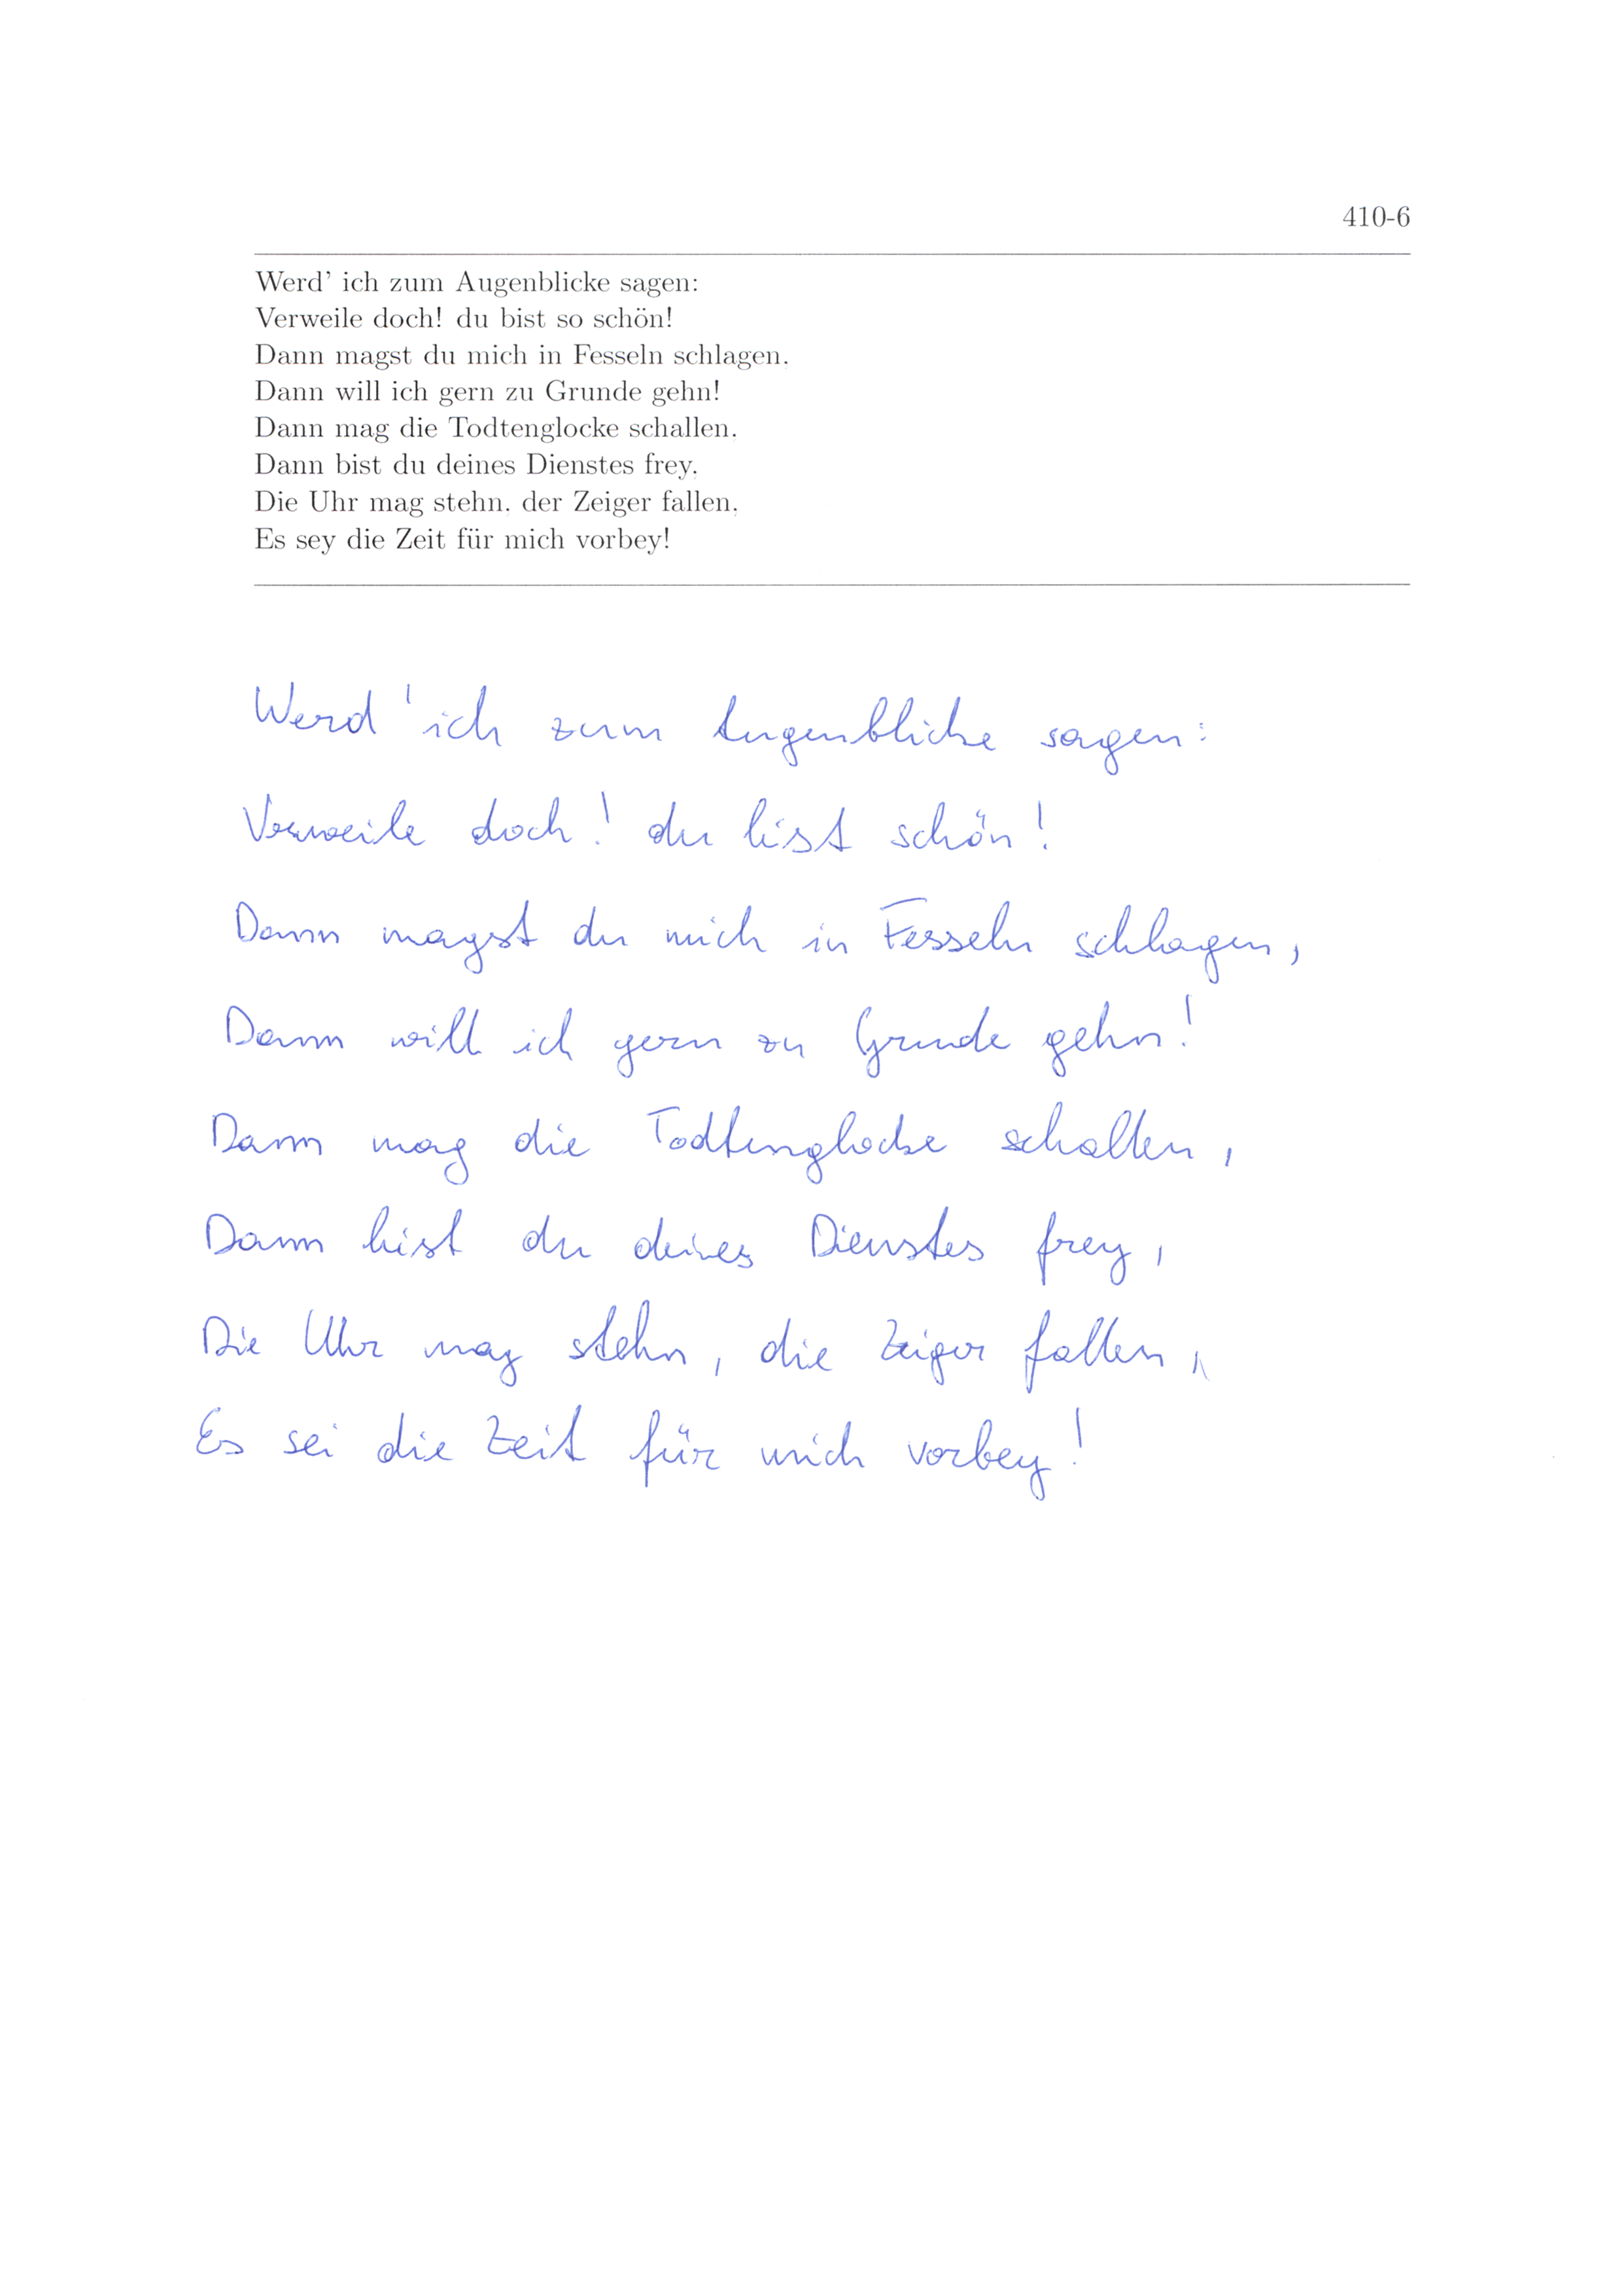 410-6
Werd' ich zum Augenblicke sagen:
Verweile doch! du bist so schön!
Dann magst du mich in Fesseln schlagen,
Dann will ich gern zu Grunde gehn!
Dann mag die Todtenglocke schallen,
Dann bist du deines Dienstes frey,
Die Uhr mag stehn, der Zeiger fallen,
Es sey die Zeit für mich vorbey!
Werd' ich zum Augenblicke sagen:
Verweile doch! du bist schön!
Dann magst du mich in Fesseln schlagen,
Dann will ich gern zu Grunde gehn!
Dann mag die Todtenglocke schallen,
Dann bist du deines Dienstes frey,
Die Uhr mag stehn, die Zeiger fallen,
Es sei die Zeit für mich vorbey!